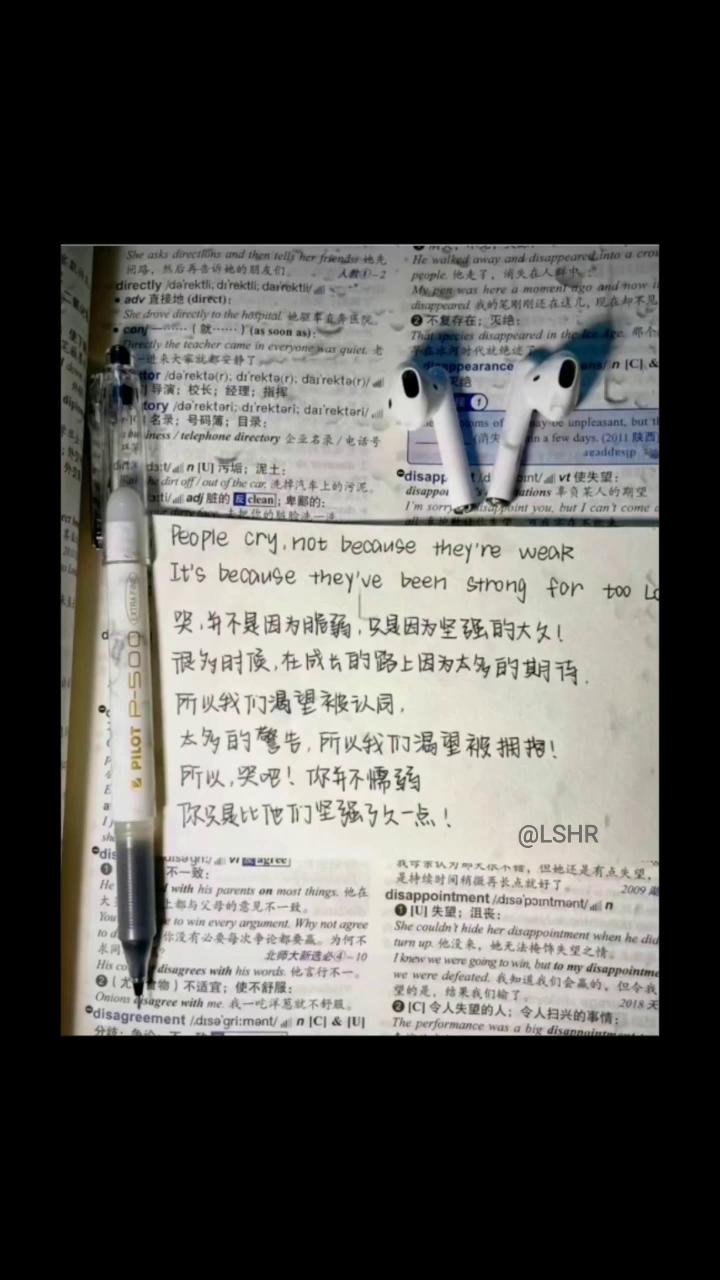 She asks directions and then tells her friends. 她先
问路，然后再告诉她的朋友们。 人教①-2
directly /də'rektli; dɪ'rektli; daɪ'rektli/
• adv 直接地 (direct)：
She drove directly to the hospital. 她驱车直奔医院。
• conj 一……（就……）(as soon as)：
Directly the teacher came in everyone was quiet. 老
一进来大家就都安静了
tor /də'rektə(r); dɪ'rektə(r); daɪ'rektə(r)/
导演；校长；经理；指挥
tory /də'rektəri; dɪ'rektəri; daɪ'rektəri/
名录；号码簿；目录：
business / telephone directory 企业名录 / 电话号
n [U] 污垢；泥土：
he dirt off / out of the car. 洗掉汽车上的污泥。
adj 脏的 反 clean；卑鄙的：
He walked away and disappeared into a crow
people. 他走了，消失在人群中。
My pen was here a moment ago and now it
disappeared. 我的笔刚刚还在这儿，现在却不见
❷不复存在；灭绝：
That species disappeared in the Ice Age. 那个
在冰河时代就绝迹了
disappearance n [C] &
灭绝
may be unpleasant, but th
in a few days. (2011 陕西
disapp vt 使失望：
辜负某人的期望
I'm sorry disappoint you, but I can't come
People cry, not because they're weak
It's because they've been strong for too Lo
哭，并不是因为脆弱，只是因为坚强的太久！
很多时候，在成长的路上因为太多的期待，
所以我们渴望被认同，
太多的警告，所以我们渴望被拥抱！
所以，哭吧！你并不懦弱
你只是比他们坚强了久一点！
@LSHR
PILOT P-500 EXTRA FINE
vi 反 agree
不一致：
He with his parents on most things. 他在
上都与父母的意见不一致。
You to win every argument. Why not agree
to d 你没有必要每次争论都要赢。为何不
求同 北师大新选必④-10
His co disagrees with his words. 他言行不一。
❷（尤 食物）不适宜；使不舒服：
Onions disagree with me. 我一吃洋葱就不舒服。
disagreement /ˌdɪsə'ɡriːmənt/ n [C] & [U]
我母亲认为那天很不错，但她还是有点失望，
是持续时间稍微再长点就好了。 2009 湖
disappointment /ˌdɪsə'pɔɪntmənt/ n
❶ [U] 失望；沮丧：
She couldn't hide her disappointment when he did
turn up. 他没来，她无法掩饰失望之情。
I knew we were going to win, but to my disappointme
we were defeated. 我知道我们会赢的，但令我
望的是，结果我们输了。 2018 天
❷ [C] 令人失望的人；令人扫兴的事情：
The performance was a big disappointment